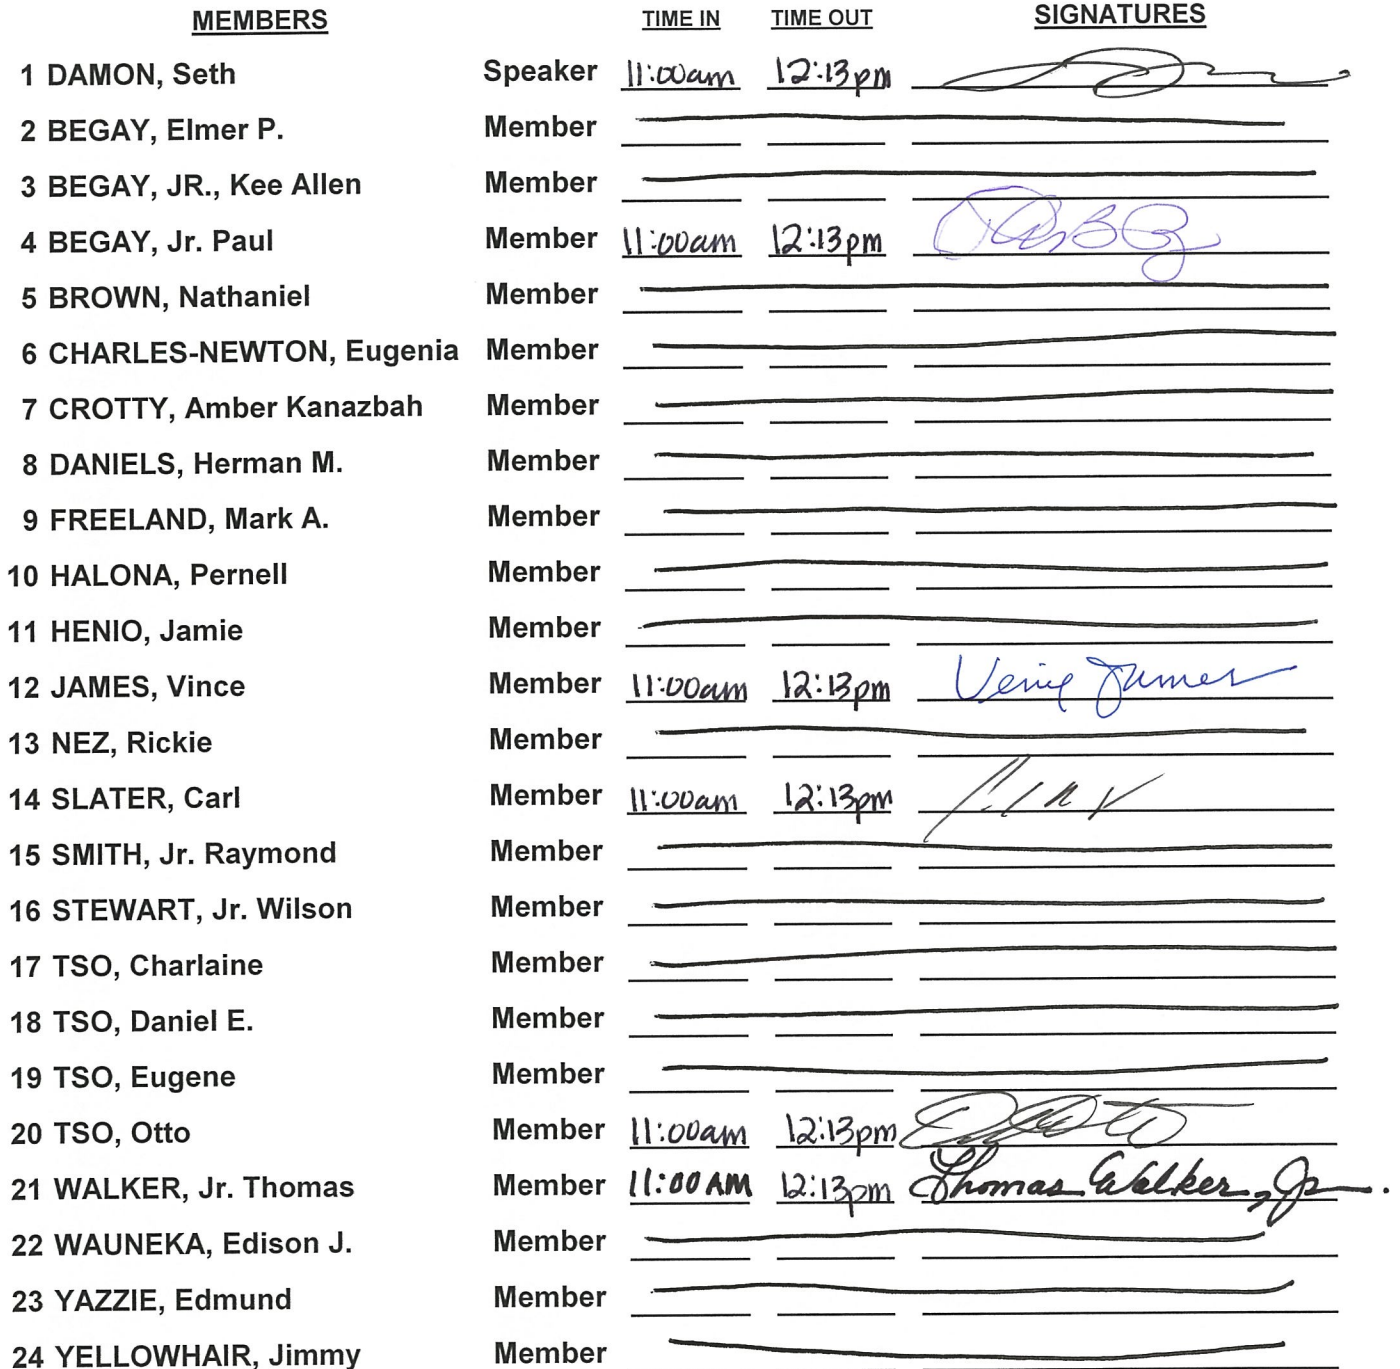 MEMBERS TIME IN TIME OUT SIGNATURES
1 DAMON, Seth Speaker 11:00am 12:13pm
2 BEGAY, Elmer P. Member
3 BEGAY, JR., Kee Allen Member
4 BEGAY, Jr. Paul Member 11:00am 12:13pm
5 BROWN, Nathaniel Member
6 CHARLES-NEWTON, Eugenia Member
7 CROTTY, Amber Kanazbah Member
8 DANIELS, Herman M. Member
9 FREELAND, Mark A. Member
10 HALONA, Pernell Member
11 HENIO, Jamie Member
12 JAMES, Vince Member 11:00am 12:13pm Vince James
13 NEZ, Rickie Member
14 SLATER, Carl Member 11:00am 12:13pm
15 SMITH, Jr. Raymond Member
16 STEWART, Jr. Wilson Member
17 TSO, Charlaine Member
18 TSO, Daniel E. Member
19 TSO, Eugene Member
20 TSO, Otto Member 11:00am 12:13pm
21 WALKER, Jr. Thomas Member 11:00 AM 12:13pm Thomas Walker, Jr.
22 WAUNEKA, Edison J. Member
23 YAZZIE, Edmund Member
24 YELLOWHAIR, Jimmy Member